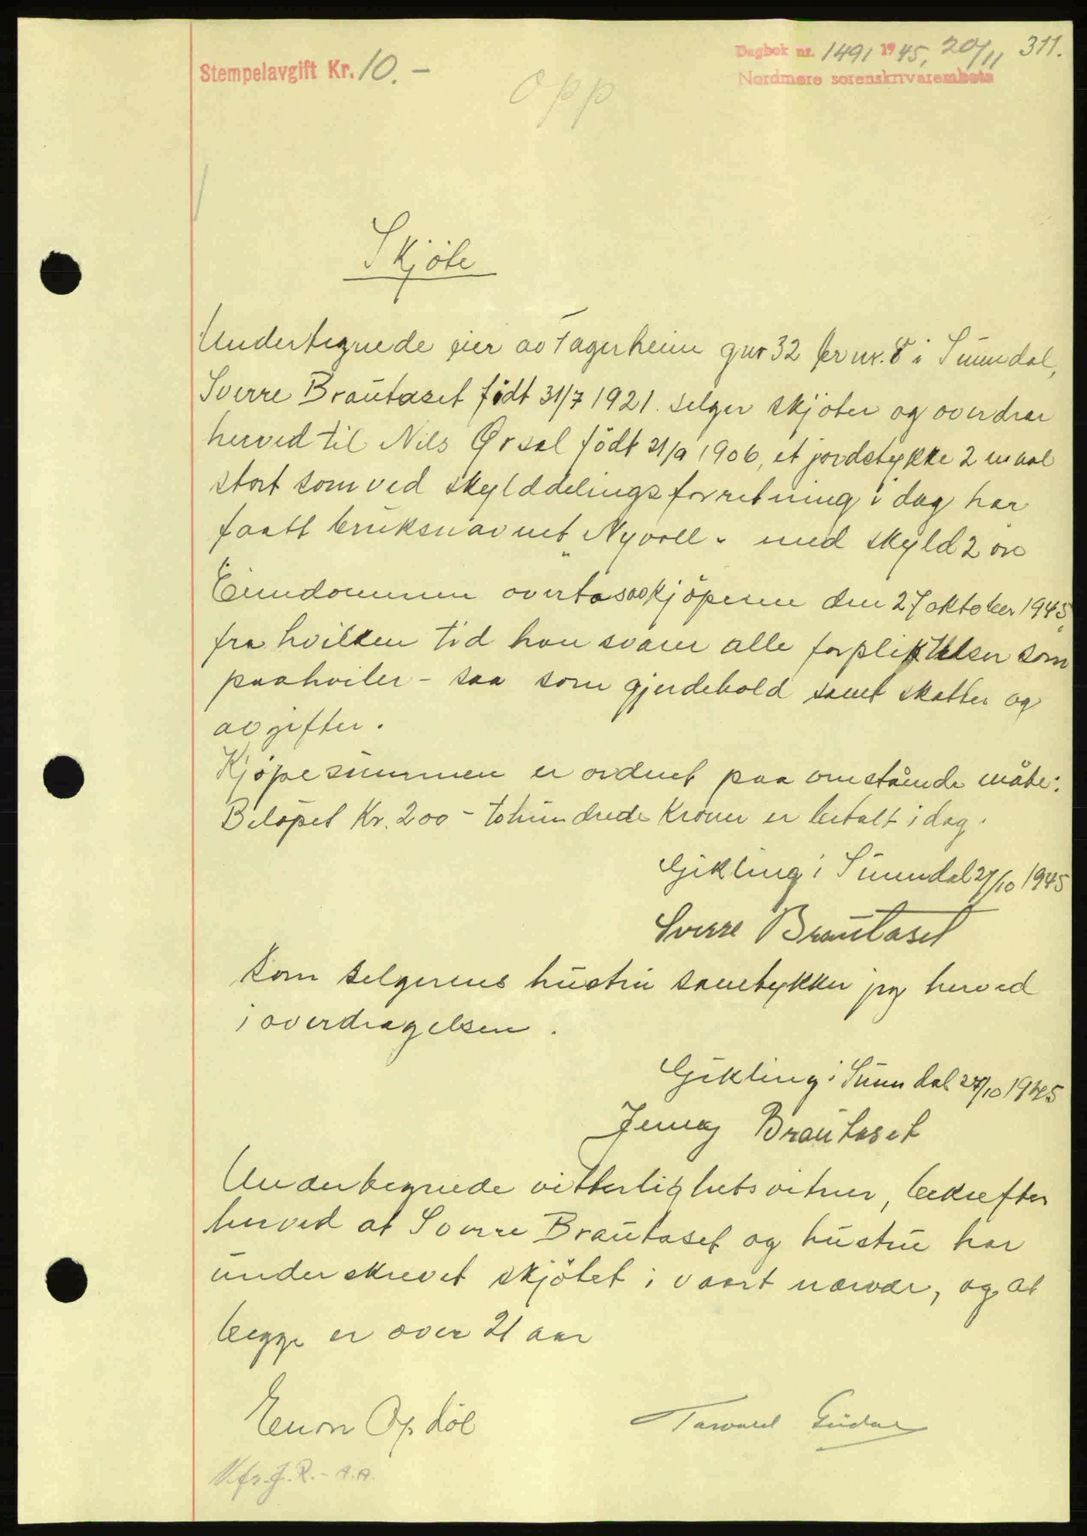 Stempelavgift Kr. 10.-
Dagbok nr. 1491 1945, 20/11 311.
Nordmøre sorenskrivarembete
opp
Skjöte
Undertegnede eier av Fagerheim gnr 32 br nr. 8 i Sunndal,
Sverre Brautaset født 31/7 1921. selger skjöter og overdrar
herved til Nils Ørsal födt 21/9 1906, et jordstykke 2 maal
stort som ved skylddelingsforretning i dag har
faatt bruksnavnet "Nyvoll" med skyld 2 öre
Eiendommen overtas av kjöperen den 27 oktober 1945
fra hvilken tid han svarer alle forpliktelser som
paahviler - saa som gjerdehold samt skatter og
avgifter.
Kjöpesummen er ordnet paa omstående måte:
Belöpet Kr. 200 - tohundrede Kroner er betalt i dag.
Gikling i Sunndal 27/10 1945
Sverre Brautaset
Som selgerens hustru samtykker jeg herved
i overdragelsen.
Gikling i Sunndal 27/10 1945
Jenny Brautaset
Undertegnede vitterlighetsvitner, bekrefter
herved at Sverre Brautaset og hustru har
underskrevet skjötet i vaart nærvær, og at
begge er over 21 aar
Einar Opdöl
Tarvald